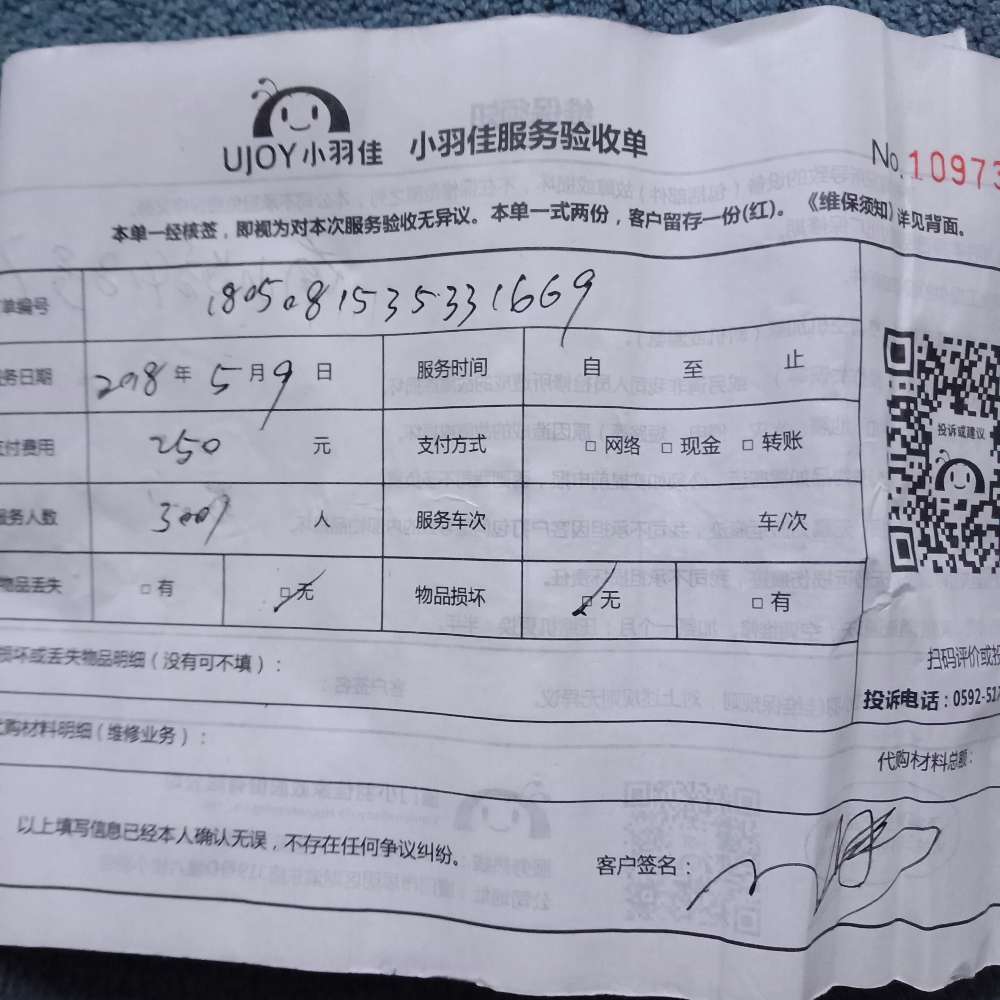 UJOY小羽佳 小羽佳服务验收单
No.10973
本单一经核签，即视为对本次服务验收无异议。本单一式两份，客户留存一份(红)。《维保须知》详见背面。
单编号 180508153533 1669
务日期 2018年5月9日 服务时间 自 至 止
支付费用 250 元 支付方式 □ 网络 □ 现金 □ 转账
投诉或建议
服务人数 人 服务车次 车/次
物品丢失 □ 有 □ 无 物品损坏 □ 无 □ 有
损坏或丢失物品明细（没有可不填）：
扫码评价或投
投诉电话：0592-517
代购材料明细（维修业务）：
代购材料总额：
以上填写信息已经本人确认无误，不存在任何争议纠纷。
客户签名：